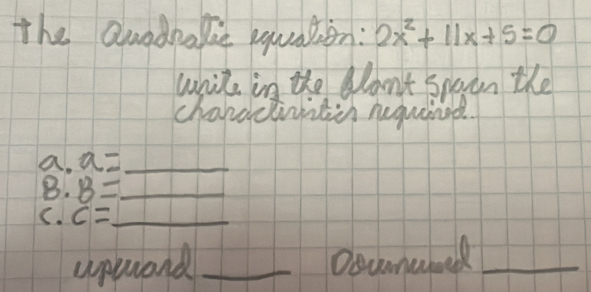 the Quadratic equation: 2x² + 11x + 5 = 0
write in the blant spaces the
characteristics required.
a. a = ______
B. B = ______
C. C = ______
upward ____ Downward ____